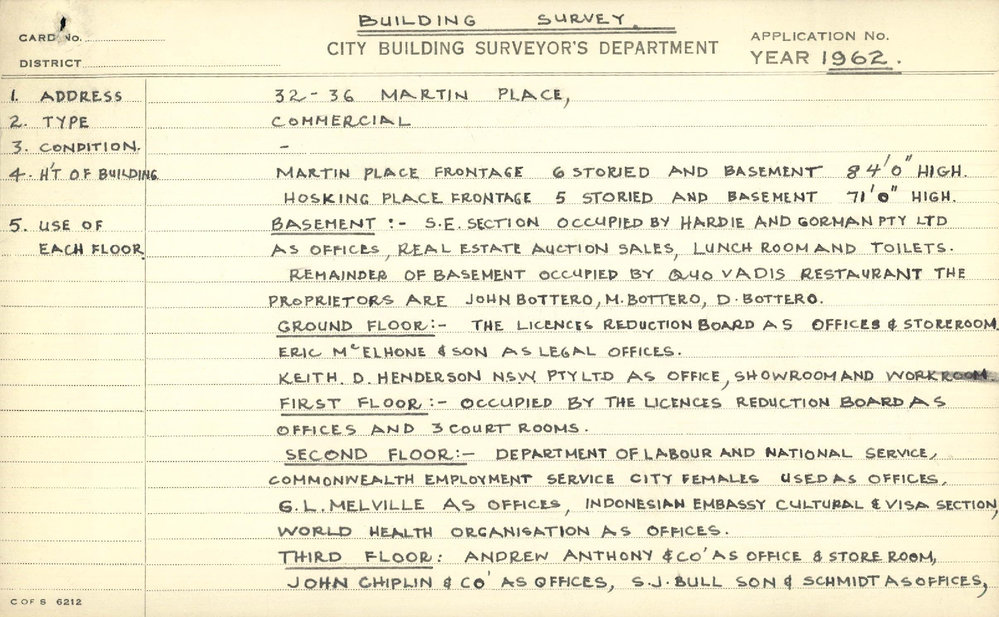 BUILDING SURVEY.
CARD No. 1
CITY BUILDING SURVEYOR'S DEPARTMENT
APPLICATION No.
DISTRICT
YEAR 1962.
1. ADDRESS 32-36 MARTIN PLACE,
2. TYPE COMMERCIAL
3. CONDITION. -
4. H'T OF BUILDING MARTIN PLACE FRONTAGE 6 STORIED AND BASEMENT 84'0" HIGH.
HOSKING PLACE FRONTAGE 5 STORIED AND BASEMENT 71'0" HIGH.
5. USE OF BASEMENT :- S.E. SECTION OCCUPIED BY HARDIE AND GORMAN PTY LTD
EACH FLOOR. AS OFFICES, REAL ESTATE AUCTION SALES, LUNCH ROOM AND TOILETS.
REMAINDER OF BASEMENT OCCUPIED BY QUO VADIS RESTAURANT THE
PROPRIETORS ARE JOHN BOTTERO, M. BOTTERO, D. BOTTERO.
GROUND FLOOR:- THE LICENCES REDUCTION BOARD AS OFFICES & STOREROOM.
ERIC McELHONE & SON AS LEGAL OFFICES.
KEITH. D. HENDERSON NSW PTY LTD AS OFFICE, SHOWROOM AND WORKROOM.
FIRST FLOOR:- OCCUPIED BY THE LICENCES REDUCTION BOARD AS
OFFICES AND 3 COURT ROOMS.
SECOND FLOOR:- DEPARTMENT OF LABOUR AND NATIONAL SERVICE,
COMMONWEALTH EMPLOYMENT SERVICE CITY FEMALES USED AS OFFICES,
G.L. MELVILLE AS OFFICES, INDONESIAN EMBASSY CULTURAL & VISA SECTION,
WORLD HEALTH ORGANISATION AS OFFICES.
THIRD FLOOR: ANDREW ANTHONY & CO' AS OFFICE & STORE ROOM,
JOHN CHIPLIN & CO' AS OFFICES, S.J. BULL SON & SCHMIDT AS OFFICES,
C OF S 6212